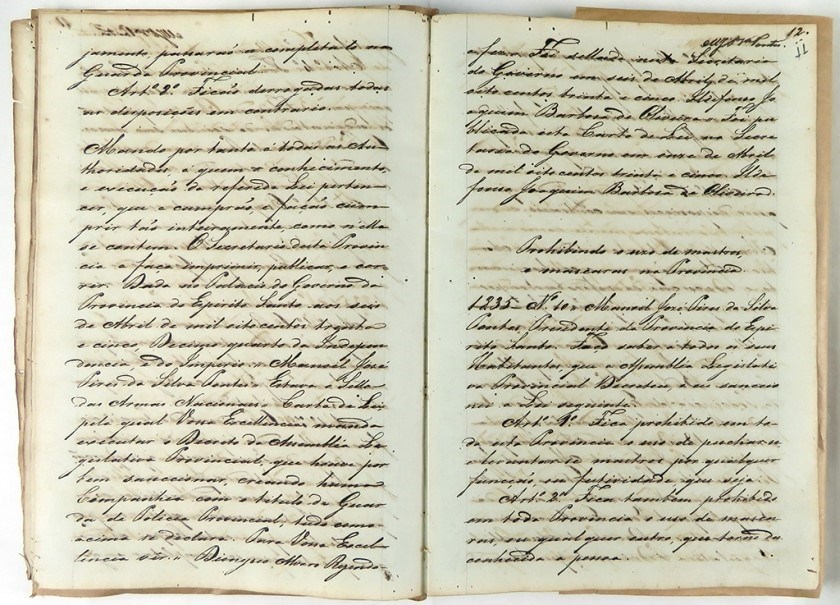 jamento, passará a completa to na
Guarda Provincial.
Artº 2º Ficão derrogadas todas
as disposições em contrario.
Mando por tanto a todas as Au-
thoridades, a quem o conhecimento,
e execução da referida Lei perten-
cer, que a cumprão, e fação cum-
prir tão inteiramente, como n'ella
se contem. O Secretario desta Provin-
cia a faça imprimir, publicar, e cor-
rer. Dada no Palacio do Governo da
Provincia do Espirito Santo aos seis
de Abril de mil oito centos trinta
e cinco, Decimo quarto da Indepen-
dencia, e do Imperio = Manoel José
Pires da Silva Pontes = Estava o Sello
das Armas Nacionaes = Carta de Lei
pela qual Vossa Excellencia manda
executar o Decreto da Assembléa Le-
gislativa Provincial, que houve por
bem sanccionar, creando huma
Companhia com o titulo de Guar-
da de Policia Provincial, tudo como
acima se declara. Para Vossa Excel-
lencia ver = Dionysio Alvaro Rezendo
12.
11
a fez = Foi sellada nesta Secretaria
do Governo em seis de Abril de mil
oito centos trinta e cinco. Ildefonso Jo-
aquim Barbosa de Oliveira = Foi pu-
blicada esta Carta de Lei na Secre-
taria do Governo em onze de Abril
de mil oito centos trinta e cinco. Ilde-
fonso Joaquim Barbosa de Oliveira.
Prohibindo o uso de mastros,
e mascaras na Provincia.
1835 = Nº 10 = Manoel José Pires da Silva
Pontes, Presidente da Provincia do Espi-
rito Santo. Faço saber a todos os seus
Habitantes, que a Assembléa Legislati-
va Provincial Decretou, e eu sanccio-
nei a Lei seguinte.
Artº 1º Fica prohibido em to-
da esta Provincia o uso de puchar-se
e levantar-se mastros por qualquer
funcção, ou festividade que seja.
Artº 2º Fica tambem prohibido
em toda Provincia o uso de masca-
ras, ou qual quer outro, que torne des-
conhecida a pessoa.